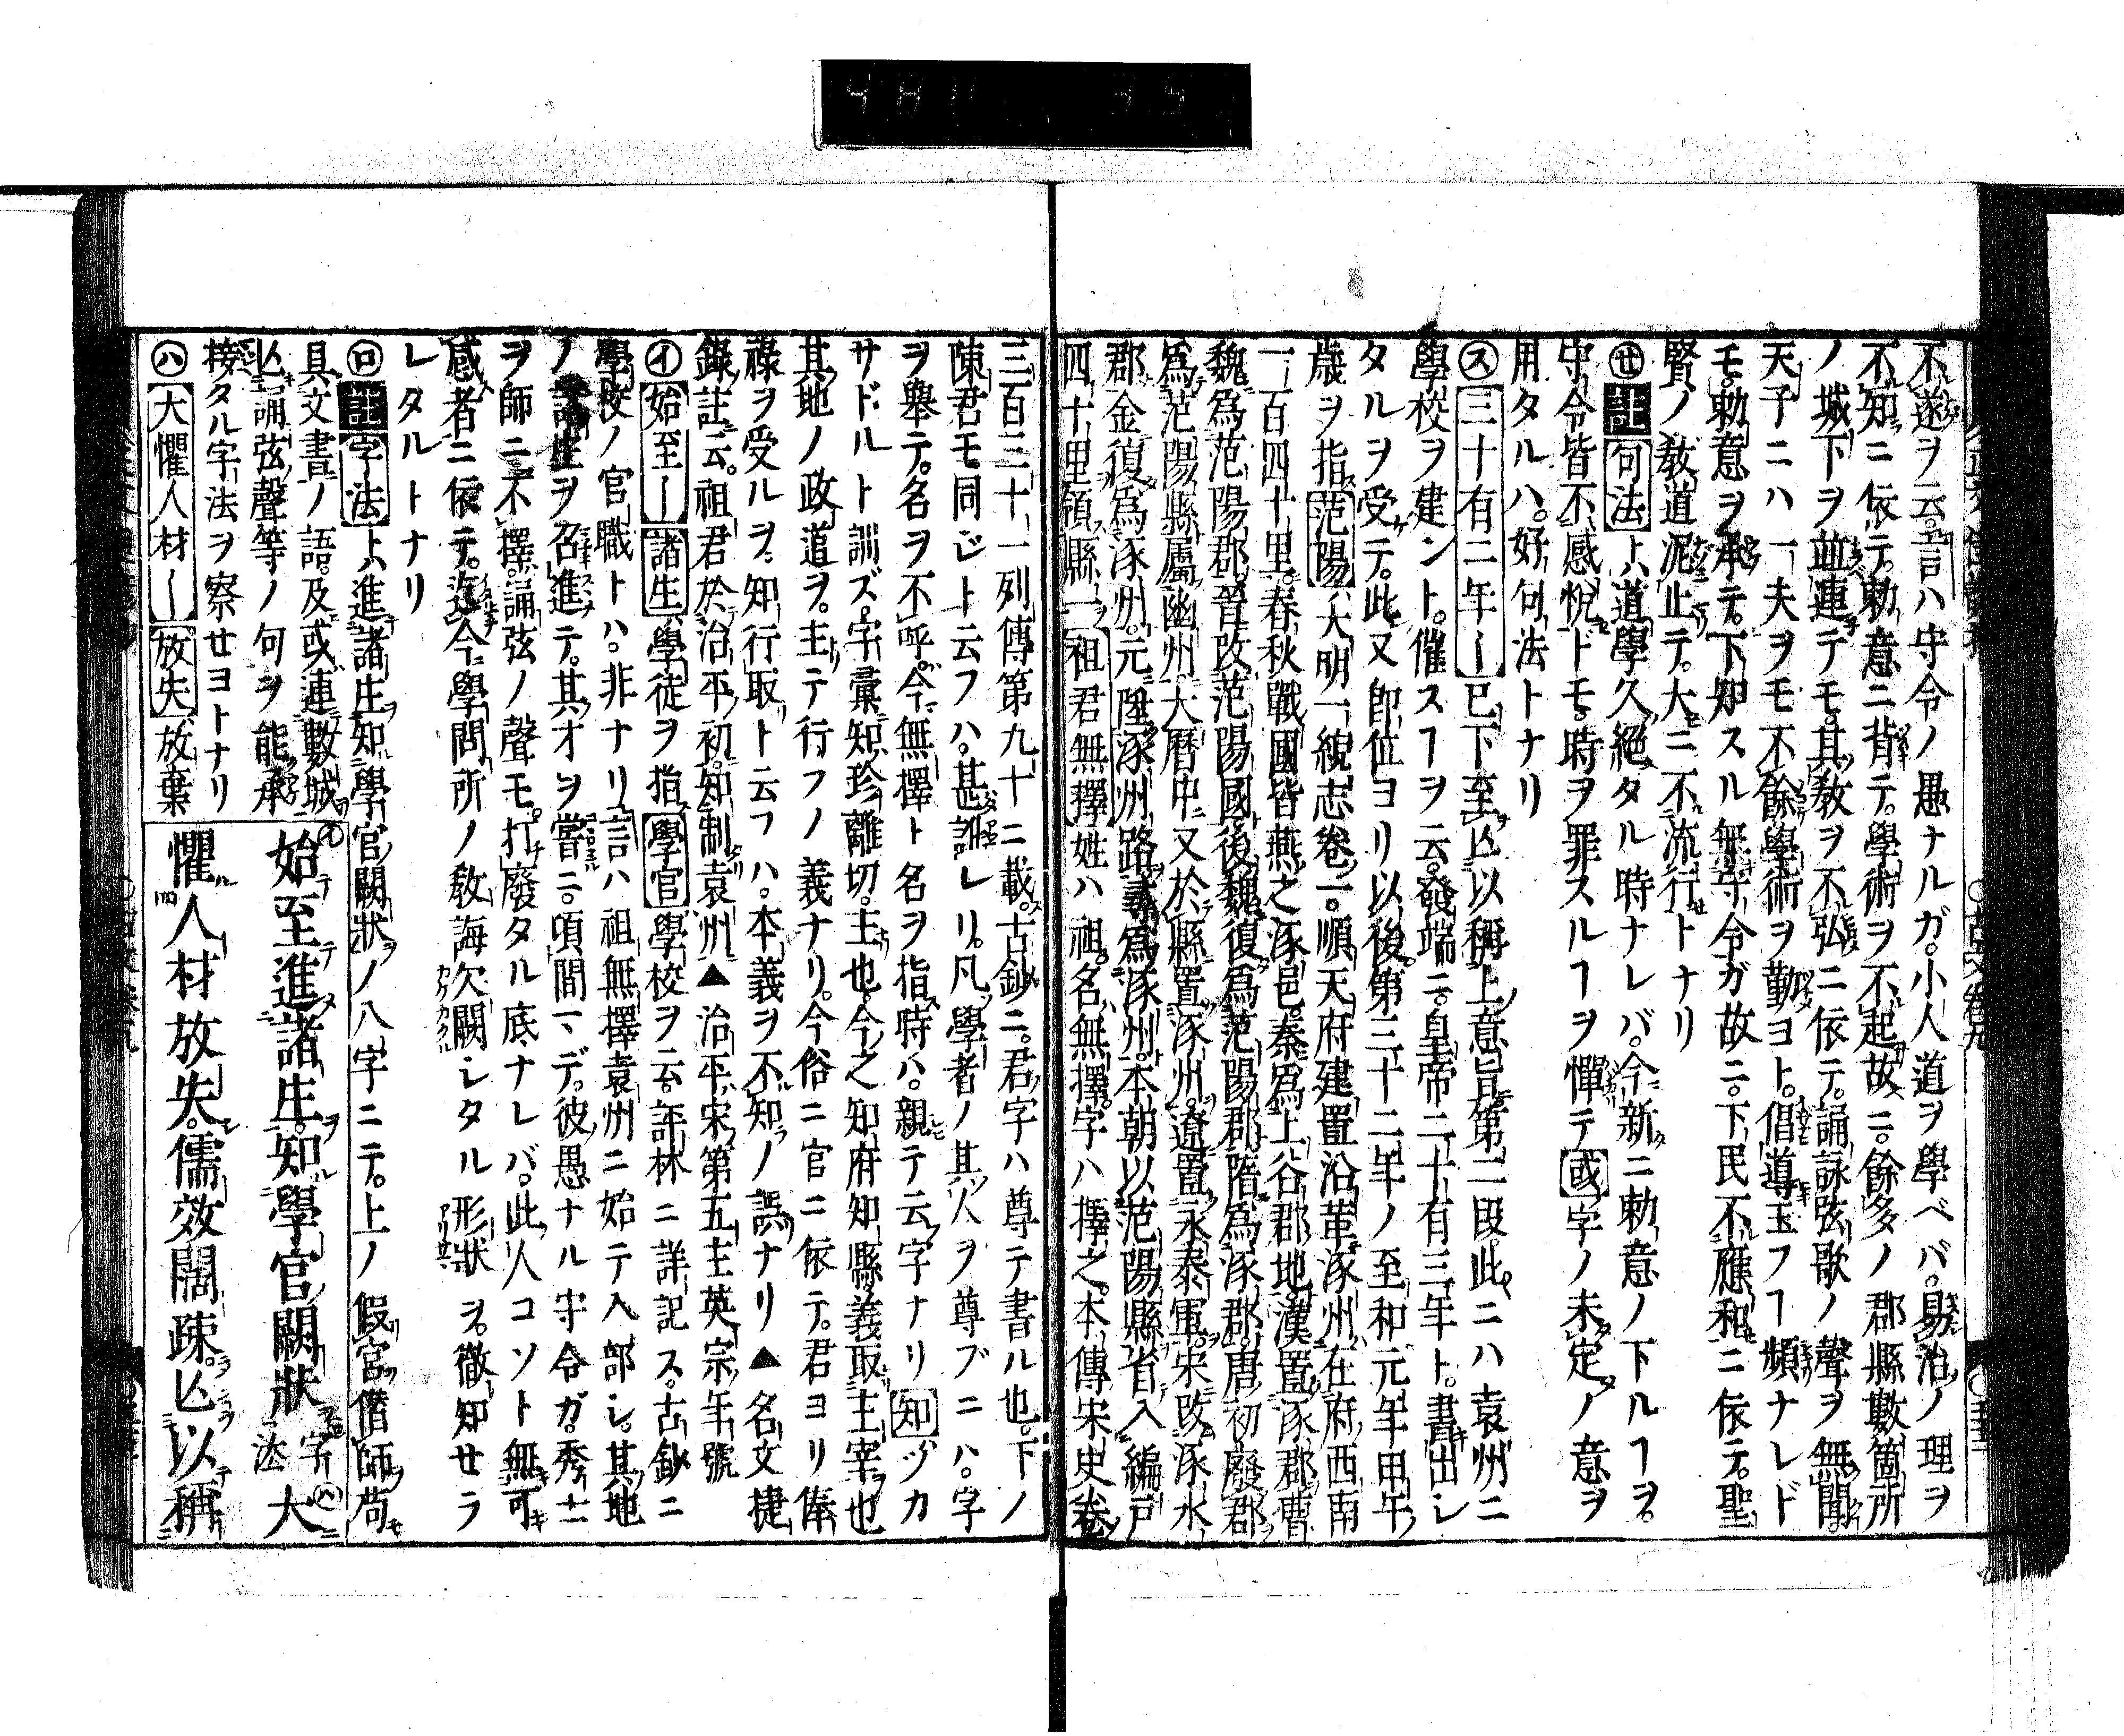 不遂ヲ云言ハ守令ノ愚ナルガ小人道ヲ學ベバ易治ノ理ヲ
不知ニ依テ勅意ニ背テ學術ヲ不起故ニ餘多ノ郡縣數箇所
ノ城下ヲ並連テモ其教ヲ不弘ニ依テ誦詠弦歌ノ聲ヲ無聞
天子ニハ一夫ヲモ不餘學術ヲ勤ヨト倡導玉フヿ頻ナレド
モ勅意ヲ承テ下知スル無守令ガ故ニ下民不應和ニ依テ聖
賢ノ教道泥止テ大ニ不流行トナリ
㋝註句法トハ道學久絕タル時ナレバ今新ニ勅意ノ下ルヿヲ
守令皆不感悅ドモ時ヲ罪スルヿヲ憚テ國字ノ未定ノ意ヲ
用タルハ好句法トナリ
㋜三十有二年〡已下至亾以稱上意旨第二段此ニハ袁州ニ
學校ヲ建ント催スヿヲ云發端ニ皇帝二十有三年ト書出シ
タルヲ受テ此又卽位ヨリ以後第三十二年ノ至和元年甲午
歳ヲ指范陽大明一統志卷一順天府建置沿革涿州在府西南
一百四十里春秋戰國皆燕之涿邑秦爲上谷郡地漢置涿郡曹
魏爲范陽郡晉改范陽國後魏復爲范陽郡隋爲涿郡唐初廢郡
爲范陽縣屬幽州大曆中又於縣置涿州遼置永泰軍宋改涿水
郡金復爲涿州元陞涿州路尋爲涿州本朝以范陽縣省入編戶
四十里領縣一祖君無擇姓ハ祖名無擇字ハ擇之本傳宋史卷
三百三十一列傳第九十ニ載古鈔ニ君字ハ尊テ書ル也下ノ
陳君モ同ジト云フハ甚訛レリ凡學者ノ其人ヲ尊ブニハ字
ヲ舉テ名ヲ不呼今無擇ト名ヲ指時ハ親テ云字ナリ知ヅカ
サドルト訓ズ字彙知珍離切主也今之知府知縣義取主宰也
其地ノ政道ヲ主テ行フノ義ナリ今俗ニ官ニ依テ君ヨリ俸
祿ヲ受ルヲ知行取ト云フハ本義ヲ不知ノ誤ナリ▲名文捷
錄註云祖君於治平初知制袁州▲治平宋第五主英宗年號
㋑始至〡諸生學徒ヲ指學官學校ヲ云評林ニ詳記ス古鈔ニ
學校ノ官職トハ非ナリ言ハ祖無擇袁州ニ始テ入部シ其地
ノ諸生ヲ召進テ其才ヲ嘗ニ頃間マデ彼愚ナル守令ガ秀
ヲ師ニ不擇誦弦ノ聲モ打廢タル底ナレバ此人コソト無可
感者ニ依テ迨今學問所ノ敎誨欠闕シタル形狀ヲ徹知セラ
レタルトナリ
㋺註字法トハ進諸生知學官闕狀ノ八字ニテ上ノ假宮僭師苟
具文書ノ語及或連數城亾誦弦聲等ノ句ヲ能承
接タル字法ヲ察セヨトナリ
㋩大懼人材〡放失放棄
始至進諸生知學官闕狀字法大
懼人材放失儒效闊疎亾以稱